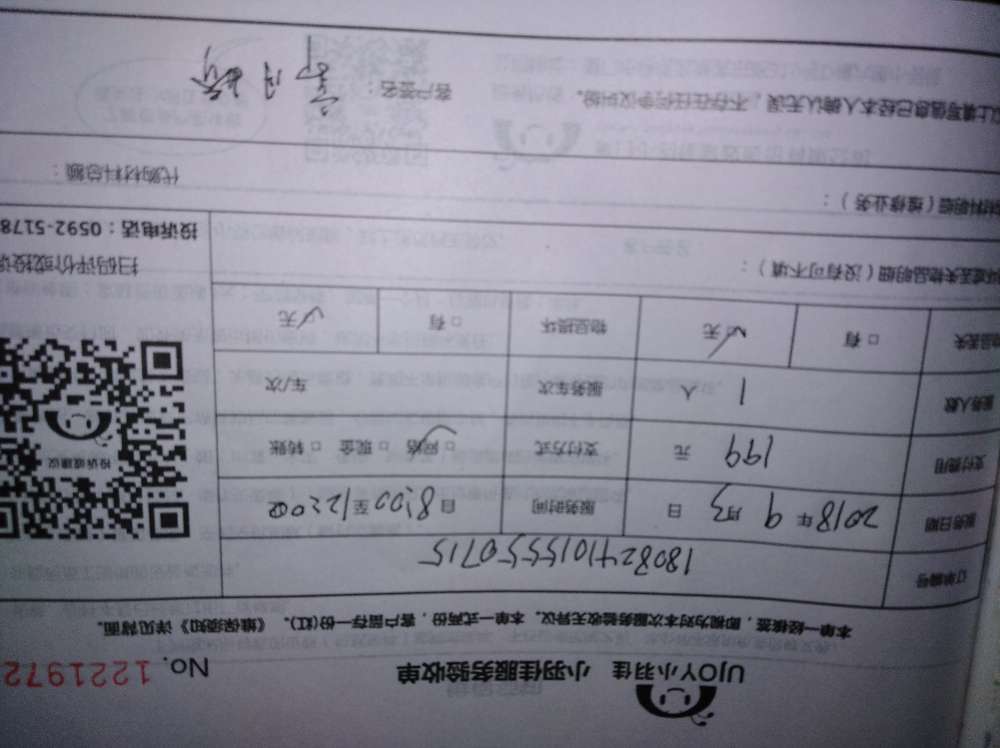 UJOY小羽佳 小羽佳服务验收单 No. 1221972
本单一经核签，即视为对本次服务验收无异议。本单一式两份，客户留存一份(红)。《维保须知》详见背面。
订单编号 180824101555550715
服务日期 2018年9月3日 服务时间 自8:00至12:00
支付费用 199元 支付方式 □网络 □现金 □转账
服务人数 1人 服务车次 车/次
物品丢失 □有 □无 物品损坏 □有 □无
投诉或建议
物品丢失物品明细（没有可不填）：
扫码评价或投诉
材料明细（维修业务）： 代购材料总额：
投诉电话：0592-5178
以上填写信息已经本人确认无误，不存在任何争议纠纷。 客户签名：